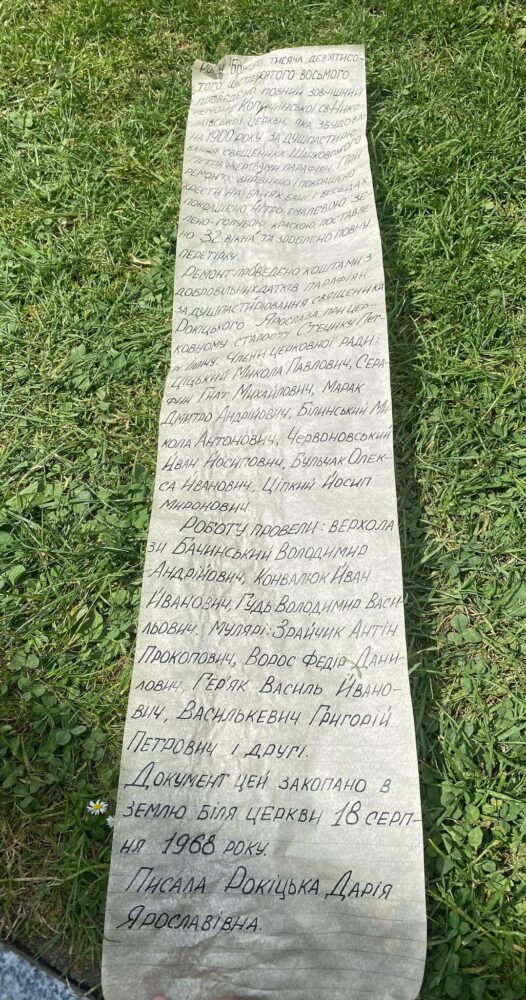 Року Божого тисяча дев'ятисо-
того шістдесятого восьмого
проведено повний зовнішний
ремонт Копичинської св. Нико-
лаївської церкви, яка збудова
на 1900 року за душпастирю-
вання священика
Петра жертвами парафіян. При
ремонті вирівняно і покрашено
хрести на банях, бані і
покрашено нітро-емалевою зе-
лено-голубою краскою, поставле-
но 32 вікна та зроблено повну
перетірку.
Ремонт проведено коштами з
добровільних датків парафіян
за душпастирювання священика
Рокіцького Ярослава при цер-
ковному старості Стецику Пет-
рі Члени церковної ради:
Ціцький Микола Павлович, Сера-
фин Гнат Михайлович, Марак
Дмитро Андрійович, Білинський Ми-
кола Антонович, Червоновський
Йван Йосипович, Бульчак Олек-
са Йванович, Ціпкий Йосип
Миронович.
Роботу провели: верхола-
зи Бачинський Володимир
Андрійович, Конвалюк Йван
Йванович, Гудь Володимир Васи-
льович. Мулярі: Зрайчик Антін
Прокопович, Ворос Федір Дани-
лович, Гер'як Василь Йвано-
вич, Василькевич Григорій
Петрович і другі.
Документ цей закопано в
землю біля церкви 18 серп-
ня 1968 року.
Писала Рокіцька Дарія
Ярославівна.